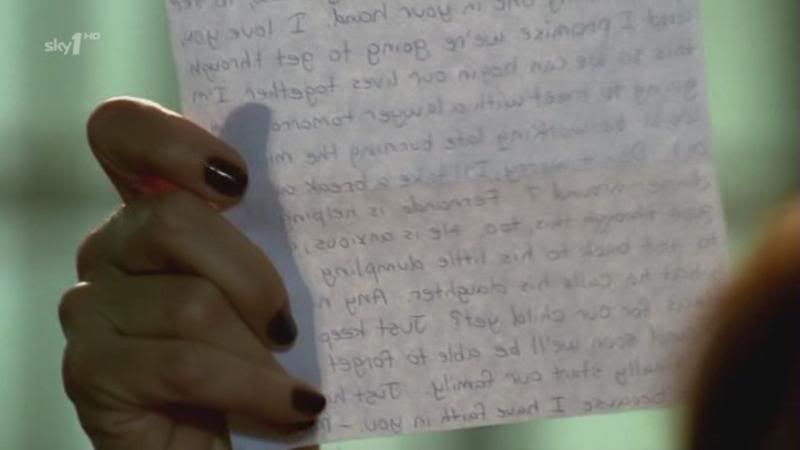 sky1 HD
in your hand. I love you
and I promise we're going to get through
this so we can begin our lives together. I'm
going to meet with a lawyer
working late burning the
I'll take a break
around 7. Fernando is helping
get through this, too. He is anxious,
to get back to his little dumpling
what he calls his daughter. Any
for our child yet? Just keep
and soon we'll be able to forget
finally start our family. Just
because I have faith in you. -